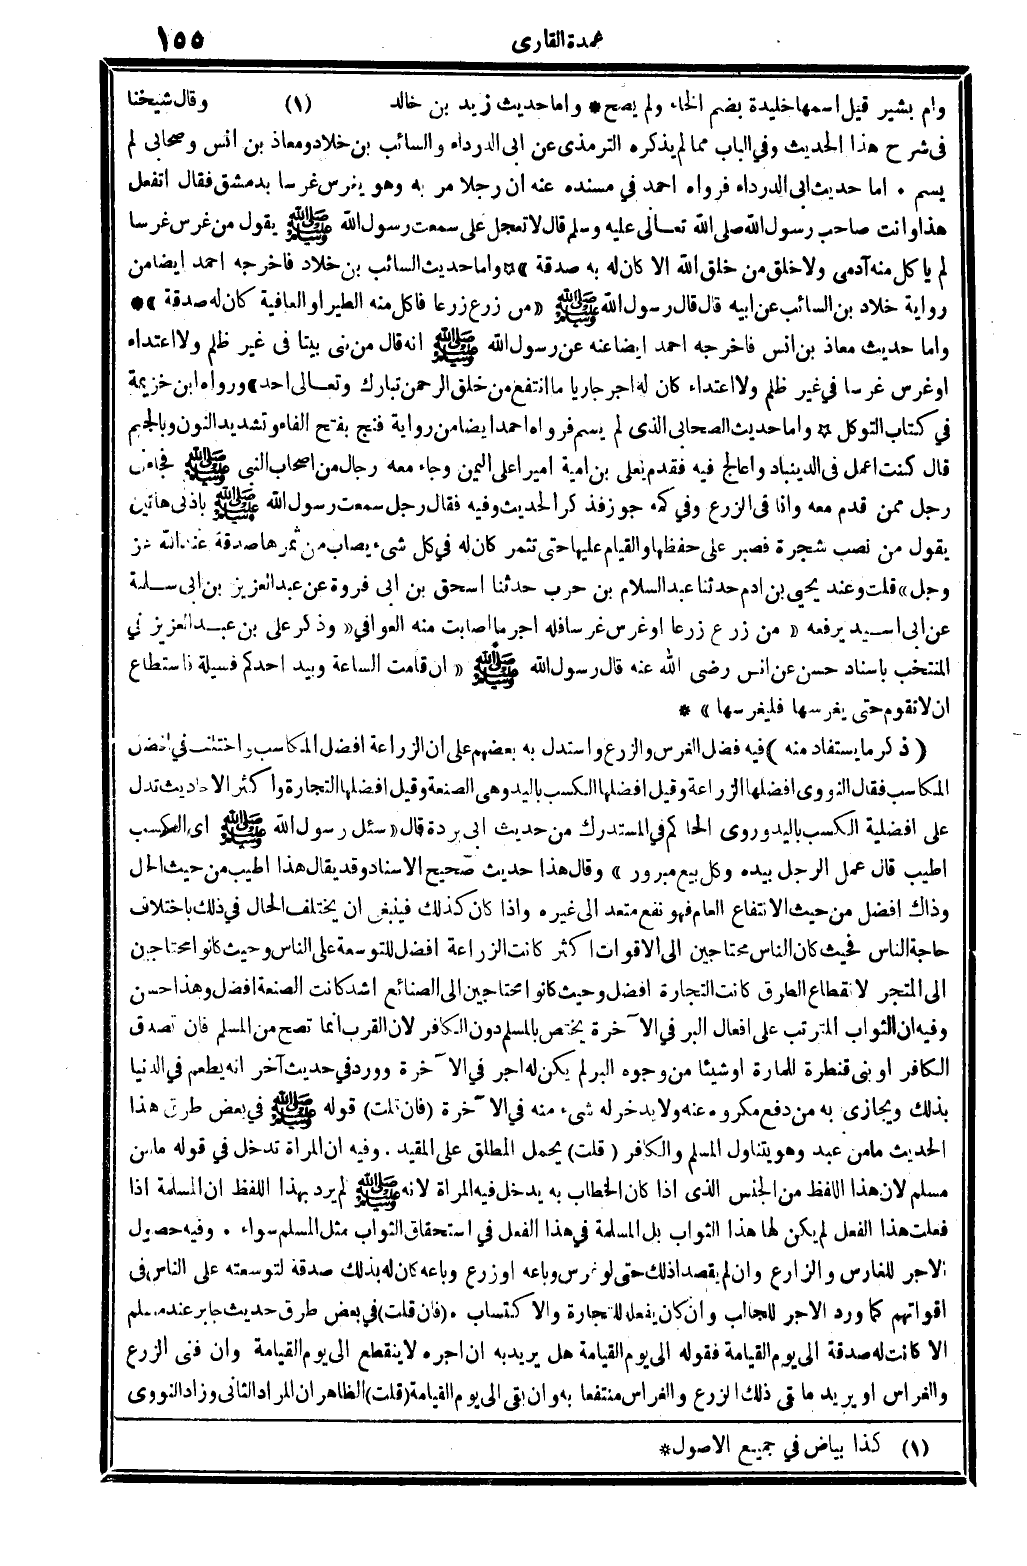 عمدة القارى ١٥٥
وام بشير قيل اسمها خليدة بضم الخاء ولم يصح * واما حديث زيد بن خالد (١) وقال شيخنا
فى شرح هذا الحديث وفي الباب مما لم يذكره الترمذى عن ابى الدرداء والسائب بن خلاد ومعاذ بن انس وصحابى لم
يسم . اما حديث ابى الدرداء فرواه احمد في مسنده عنه ان رجلا مر به وهو يغرس غرسا بدمشق فقال اتفعل
هذا وانت صاحب رسول الله صلى الله تعالى عليه وسلم قال لا تعجل على سمعت رسول الله ﷺ يقول من غرس غرسا
لم يا كل منه آدمى ولا خلق من خلق الله الا كان له به صدقة » * واما حديث السائب بن خلاد فاخرجه احمد ايضا من
رواية خلاد بن السائب عن ابيه قال قال رسول الله ﷺ « من زرع زرعا فاكل منه الطير او العافية كان له صدقة » *
واما حديث معاذ بن انس فاخرجه احمد ايضا عنه عن رسول الله ﷺ انه قال من بنى بيتا فى غير ظلم ولا اعتداء
او غرس غرسا في غير ظلم ولا اعتداء كان له اجر جاريا ما انتفع من خلق الرحمن تبارك وتعالى احد » ورواه ابن خزيمة
في كتاب التوكل * واما حديث الصحابى الذى لم يسم فرواه احمد ايضا من رواية فنج بفتح الفاء وتشديد النون وبالجيم
قال كنت اعمل فى الدينباد واعالج فيه فقدم يعلى بن امية اميرا على اليمن وجاء معه رجال من اصحاب النبى ﷺ فجاءنى
رجل ممن قدم معه وانا فى الزرع وفي كمه جوز فذكر الحديث وفيه فقال رجل سمعت رسول الله ﷺ باذنى هاتين
يقول من نصب شجرة فصبر على حفظها والقيام عليها حتى تثمر كان له في كل شىء يصاب من ثمرها صدقة عند الله عز
وجل » قلت وعند يحيى بن ادم حدثنا عبد السلام بن حرب حدثنا اسحق بن ابى فروة عن عبد العزيز بن ابى سلمة
عن ابى اسيد يرفعه « من زرع زرعا او غرس غرسا فله اجر ما اصابت منه العوافي « وذكر على بن عبد العزيز في
المنتخب باسناد حسن عن انس رضى الله عنه قال رسول الله ﷺ « ان قامت الساعة وبيد احدكم فسيلة فاستطاع
ان لا تقوم حتى يغرسها فليغرسها » *
( ذكر ما يستفاد منه ) فيه فضل الغرس والزرع واستدل به بعضهم على ان الزراعة افضل المكاسب واختلف في افضل
المكاسب فقال النووى افضلها الزراعة وقيل افضلها الكسب باليد وهى الصنعة وقيل افضلها التجارة واكثر الاحاديث تدل
على افضلية الكسب باليد وروى الحاكم في المستدرك من حديث ابى بردة قال « سئل رسول الله ﷺ اى الكسب
اطيب قال عمل الرجل بيده وكل بيع مبرور » وقال هذا حديث صحيح الاسناد وقد يقال هذا اطيب من حيث الحل
وذاك افضل من حيث الانتفاع العام فهو نفع متعد الى غيره واذا كان كذلك فينبغى ان يختلف الحال في ذلك باختلاف
حاجة الناس فحيث كان الناس محتاجين الى الاقوات اكثر كانت الزراعة افضل للتوسعة على الناس وحيث كانوا محتاجين
الى المتجر لانقطاع الطرق كانت التجارة افضل وحيث كانوا محتاجين الى الصنائع اشد كانت الصنعة افضل وهذا حسن
وفيه ان الثواب المترتب على افعال البر في الآخرة يختص بالمسلم دون الكافر لان القرب انما تصح من المسلم فان تصدق
الكافر او بنى قنطرة للمارة او شيئا من وجوه البر لم يكن له اجر في الآخرة وورد في حديث آخر انه يطعم في الدنيا
بذلك ويجازى به من دفع مكروه عنه ولا يدخر له شىء منه في الآخرة (فان قلت) قوله ﷺ في بعض طرق هذا
الحديث ما من عبد وهو يتناول المسلم والكافر ( قلت) يحمل المطلق على المقيد . وفيه ان المراة تدخل في قوله ما من
مسلم لان هذا اللفظ من الجنس الذى اذا كان الخطاب به يدخل فيه المراة لانه ﷺ لم يرد بهذا اللفظ ان المسلمة اذا
فعلت هذا الفعل لم يكن لها هذا الثواب بل المسلمة في هذا الفعل في استحقاق الثواب مثل المسلم سواء . وفيه حصول
الاجر للغارس والزارع وان لم يقصدا ذلك حتى لو غرس وباعه او زرع وباعه كان له بذلك صدقة لتوسعته على الناس فى
اقواتهم كما ورد الاجر للجالب وان كان يفعله للتجارة والاكتساب . (فان قلت) في بعض طرق حديث جابر عند مسلم
الا كانت له صدقة الى يوم القيامة فقوله الى يوم القيامة هل يريد به ان اجره لا ينقطع الى يوم القيامة وان فنى الزرع
والغراس او يريد ما بقى ذلك الزرع والغراس منتفعا به وان بقى الى يوم القيامة (قلت) الظاهر ان المراد الثانى وزاد النووى
(١) كذا بياض في جميع الاصول*